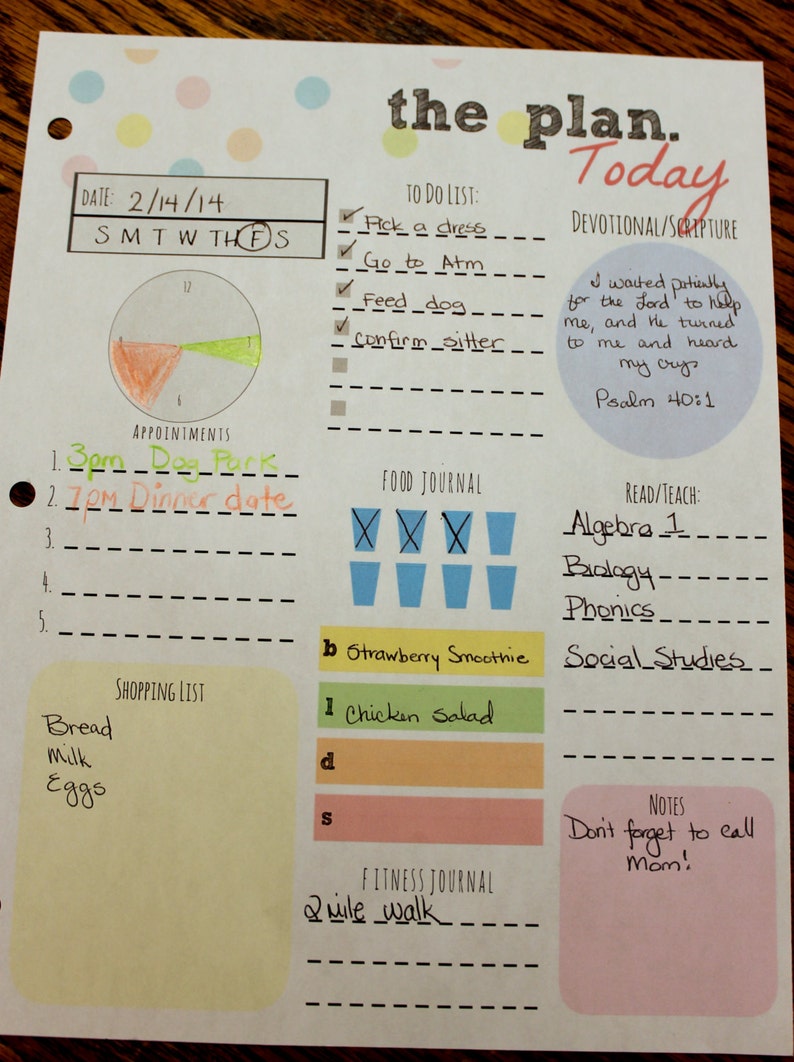 the plan.
Today
DATE: 2/14/14
S M T W TH F S
12
3
6
APPOINTMENTS
1. 3pm Dog Park
2. 7pm Dinner date
3.
4.
5.
SHOPPING LIST
Bread
Milk
Eggs
TO DO LIST:
Pick a dress
Go to Atm
Feed dog
confirm sitter
FOOD JOURNAL
b Strawberry Smoothie
l Chicken Salad
d
s
FITNESS JOURNAL
2 mile walk
DEVOTIONAL/SCRIPTURE
I waited patiently
for the Lord to help
me, and He turned
to me and heard
my cry.
Psalm 40:1
READ/TEACH:
Algebra 1
Biology
Phonics
Social Studies
NOTES
Don't forget to call
Mom!